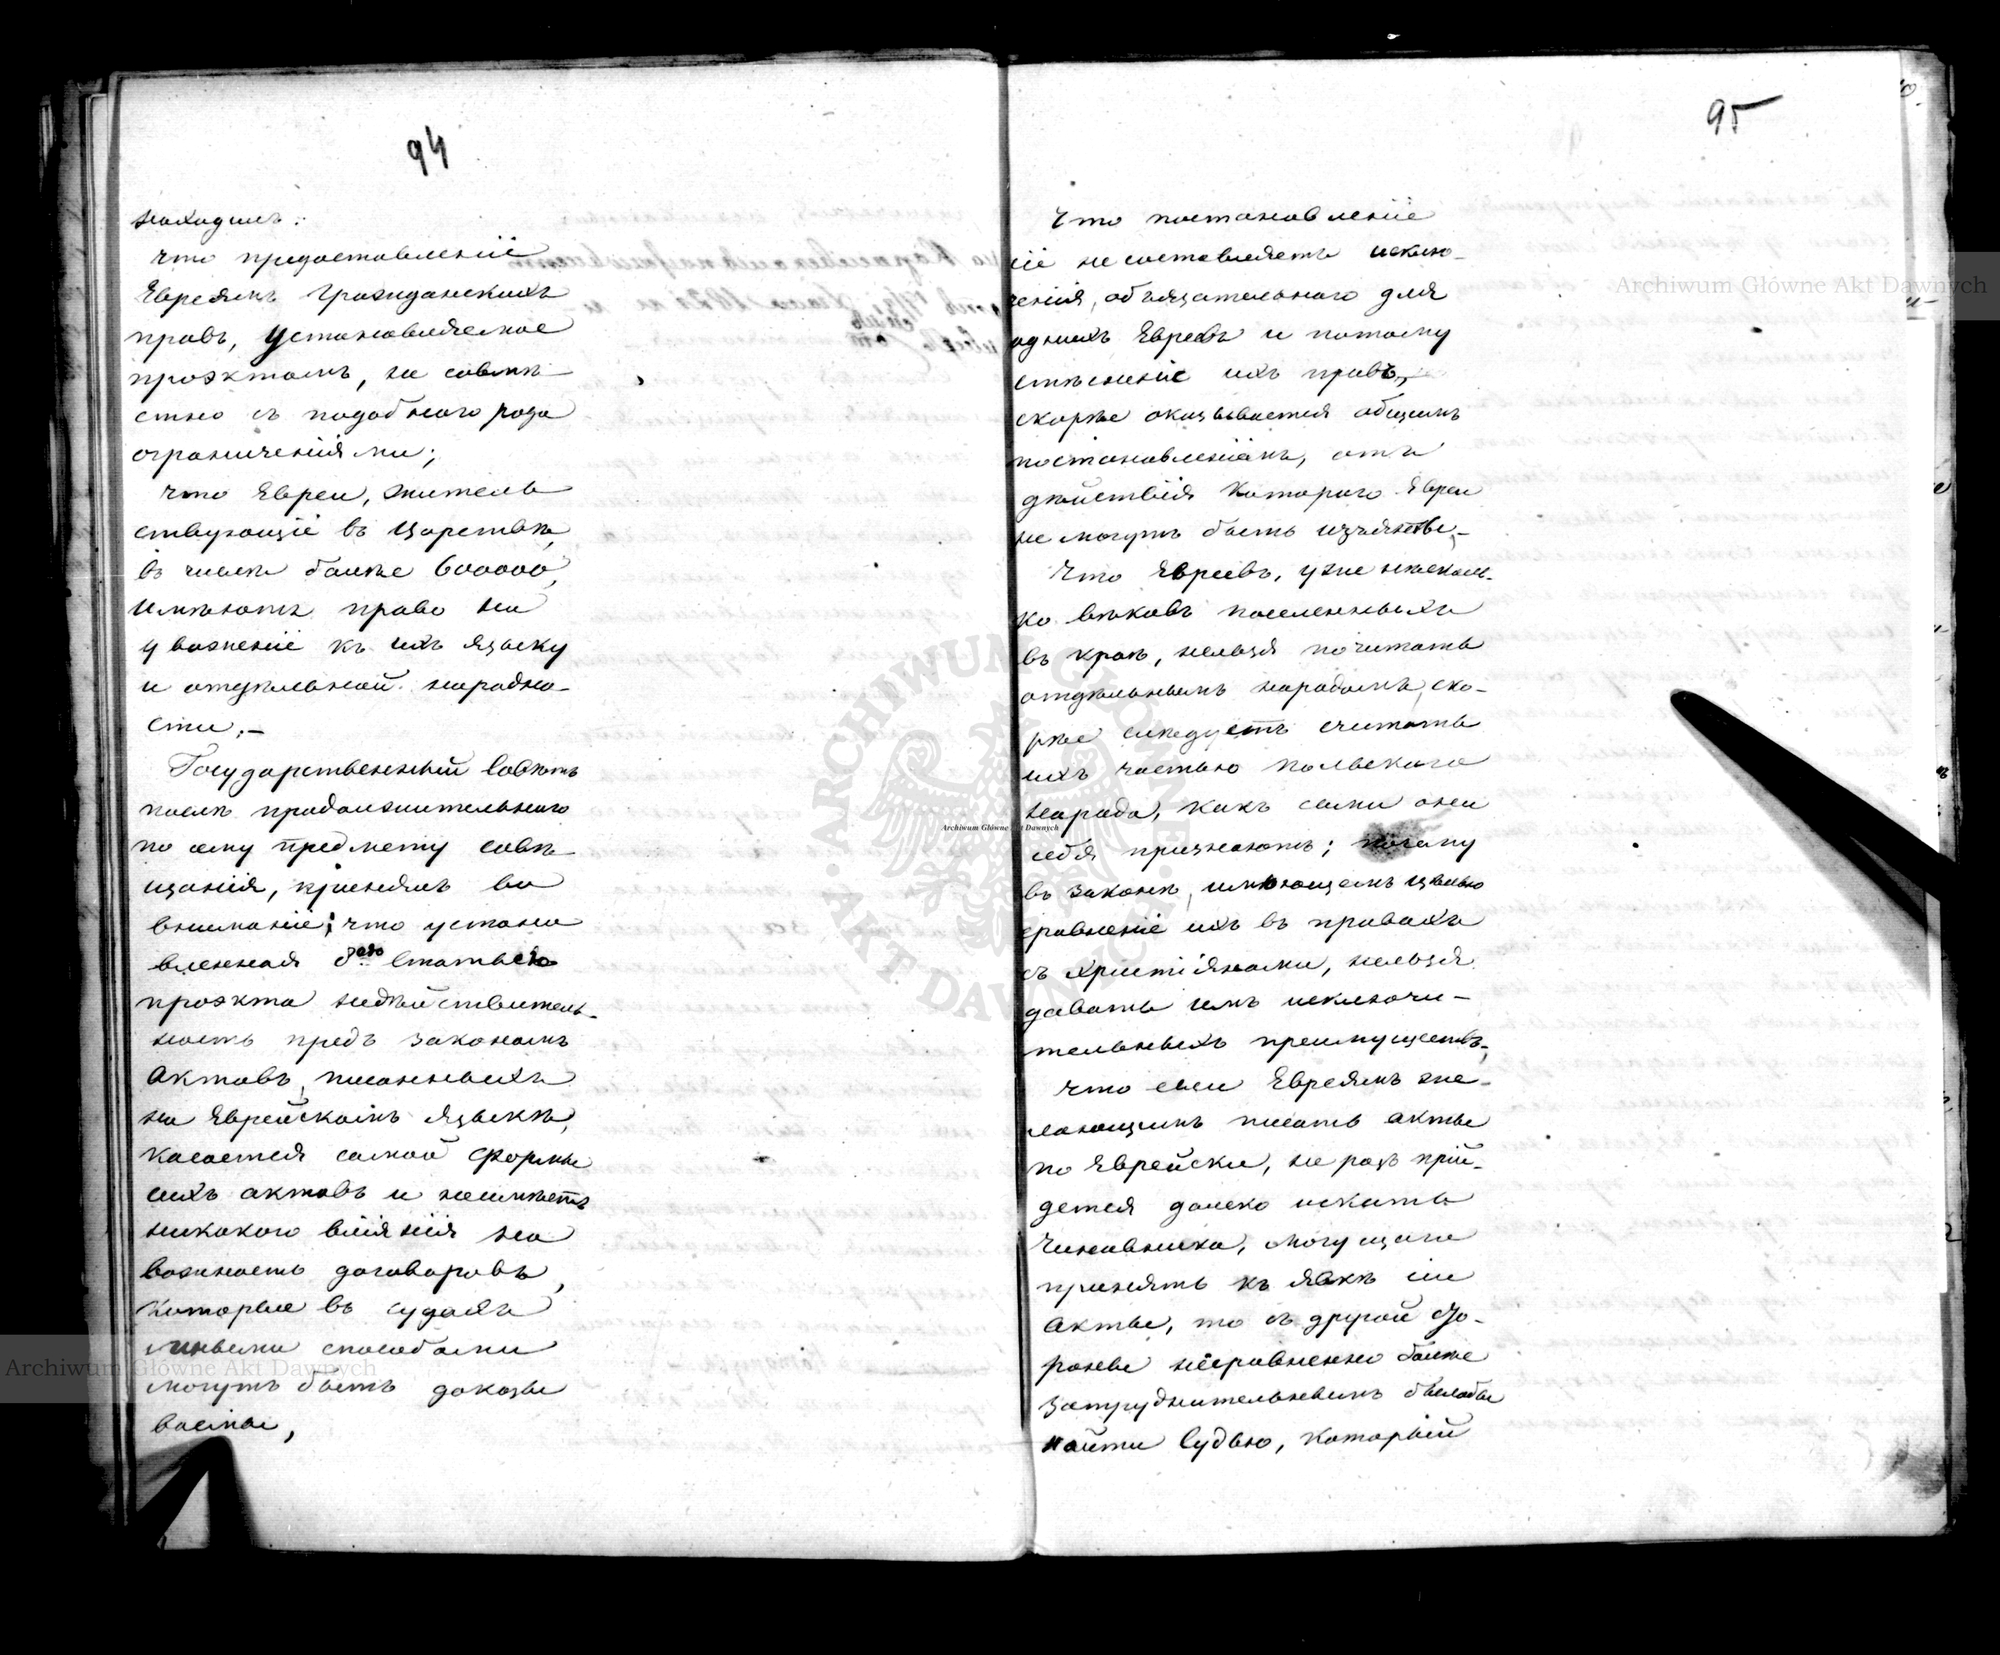 94
находимъ:
что предоставленіе
Евреямъ Гражданскихъ
правъ, установляемое
проэктомъ, не совмѣ-
стно съ подобнаго рода
ограниченіями;
что Евреи, житель
ствующіе въ Царствѣ,
въ числѣ болѣе 600000,
имѣютъ право на
уваженіе къ ихъ языку
и отдѣльной народно-
сти.-
Государственный Совѣтъ
послѣ продолжительнаго
по сему предмету совѣ-
щанія, принялъ во
вниманіе; что устано
вленная 8ою Статьею
проэкта недѣйствитель-
ность предъ закономъ
Актовъ, писанныхъ
на Еврейскомъ языкѣ,
касается самой формы
сихъ актовъ и неимѣетъ
никакого вліянія на
важность договоровъ,
которые въ судахъ
иными способами
могутъ быть доказы
ваемы,
95
Что постановленіе
сіе не составляетъ исклю-
ченія, обязательнаго для
однихъ Евреевъ и потому
стѣсненіе ихъ правъ,
скорѣе оказывается общимъ
постановленіемъ, отъ
дѣйствія котораго Евреи
не могутъ быть изъяты;-
Что Евреевъ, уже нѣсколь-
ко вѣковъ поселенныхъ
въ краѣ, нельзя почитать
отдѣльнымъ народомъ, ско-
рѣе слѣдуетъ считать
ихъ частью польскаго
народа, какъ сами они
себя признаютъ; почему
въ законѣ, имѣющемъ цѣлью
сравненіе ихъ въ правахъ
съ Христіянами, нельзя
давать имъ исключи-
тельныхъ преимуществъ,-
Что если Евреямъ же-
лающимъ писать акты
по Еврейски, не разъ прій-
дется далеко искать
Чиновника, могущаго
принять къ явкѣ сіи
Акты, то съ другой сто-
роны несравненно болѣе
затруднительнымъ былобы
найти Судью, который
Archiwum Główne Akt Dawnych
Archiwum Główne Akt Dawnych
Archiwum Główne Akt Dawnych
ARCHIWUM GŁÓWNE AKT DAWNYCH